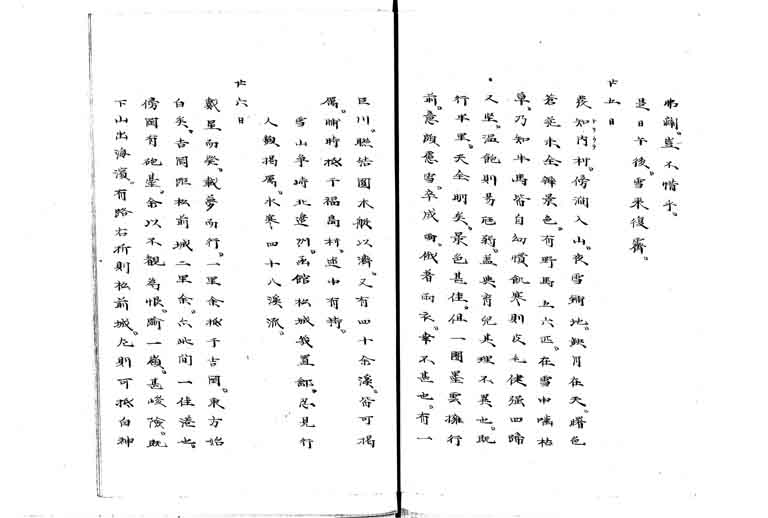 弗翦。豈不惜乎。
是日午後。雪来復霽。
廿五日
発知内村。傍澗入山。夜雪鋪地。缺月在天。曙色
蒼茫。未全辨景色。有野馬五六匹。在雪中噛枯
草。乃知牛馬皆自幼慣飢寒則皮毛健強四蹄
又堅。温飽則易尫弱。蓋与育児其理不異也。既
行半里。天全明矣。景色甚佳。但一團墨雲擁行
前。意頗慮雪。卒成雨。俄著雨衣。幸不甚也。有一
巨川。聯桔園木
以済。又有四十余溪。皆可掲
厲。晡時抵于福島村。途中有詩。
雪山争峙北辺州。函館松城幾置郵。忽見行
人数掲厲。水寒四十八溪流。
廿六日
戴星而発。載夢而行。一里余抵于吉岡。東方始
白矣。吉岡距松前城二里余。亦此間一佳港也。
傍岡有砲臺。余以不観為恨。踰一嶺。甚峻険。既
下山出海濱。有路右折則松前城。左則可抵白神